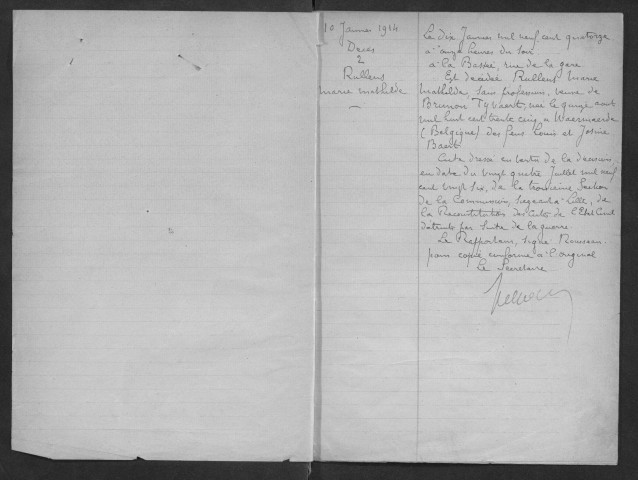 10 Janvier 1914
Décès
2
Rullens
marie mathilde
Le dix Janvier mil neuf cent quatorze
à onze heures du soir
à la Bassée, rue de la gare
Est décédée Rullens, Marie
Mathilde, sans profession, veuve de
Tyvaert, née le quinze aout
mil huit cent trente cinq, à Waermaerde
(Belgique) des feus Louis et Josine
Baert
Acte dressé en vertu de la décision
en date du vingt quatre Juillet mil neuf
cent vingt six, de la troisième Section
de la Commission, siégeant à Lille, de
la Reconstitution des actes de l'Etat Civil
détruits par suite de la guerre.
Le Rapporteur, signé Rousseau.
pour copie conforme à l'original
Le Secrétaire